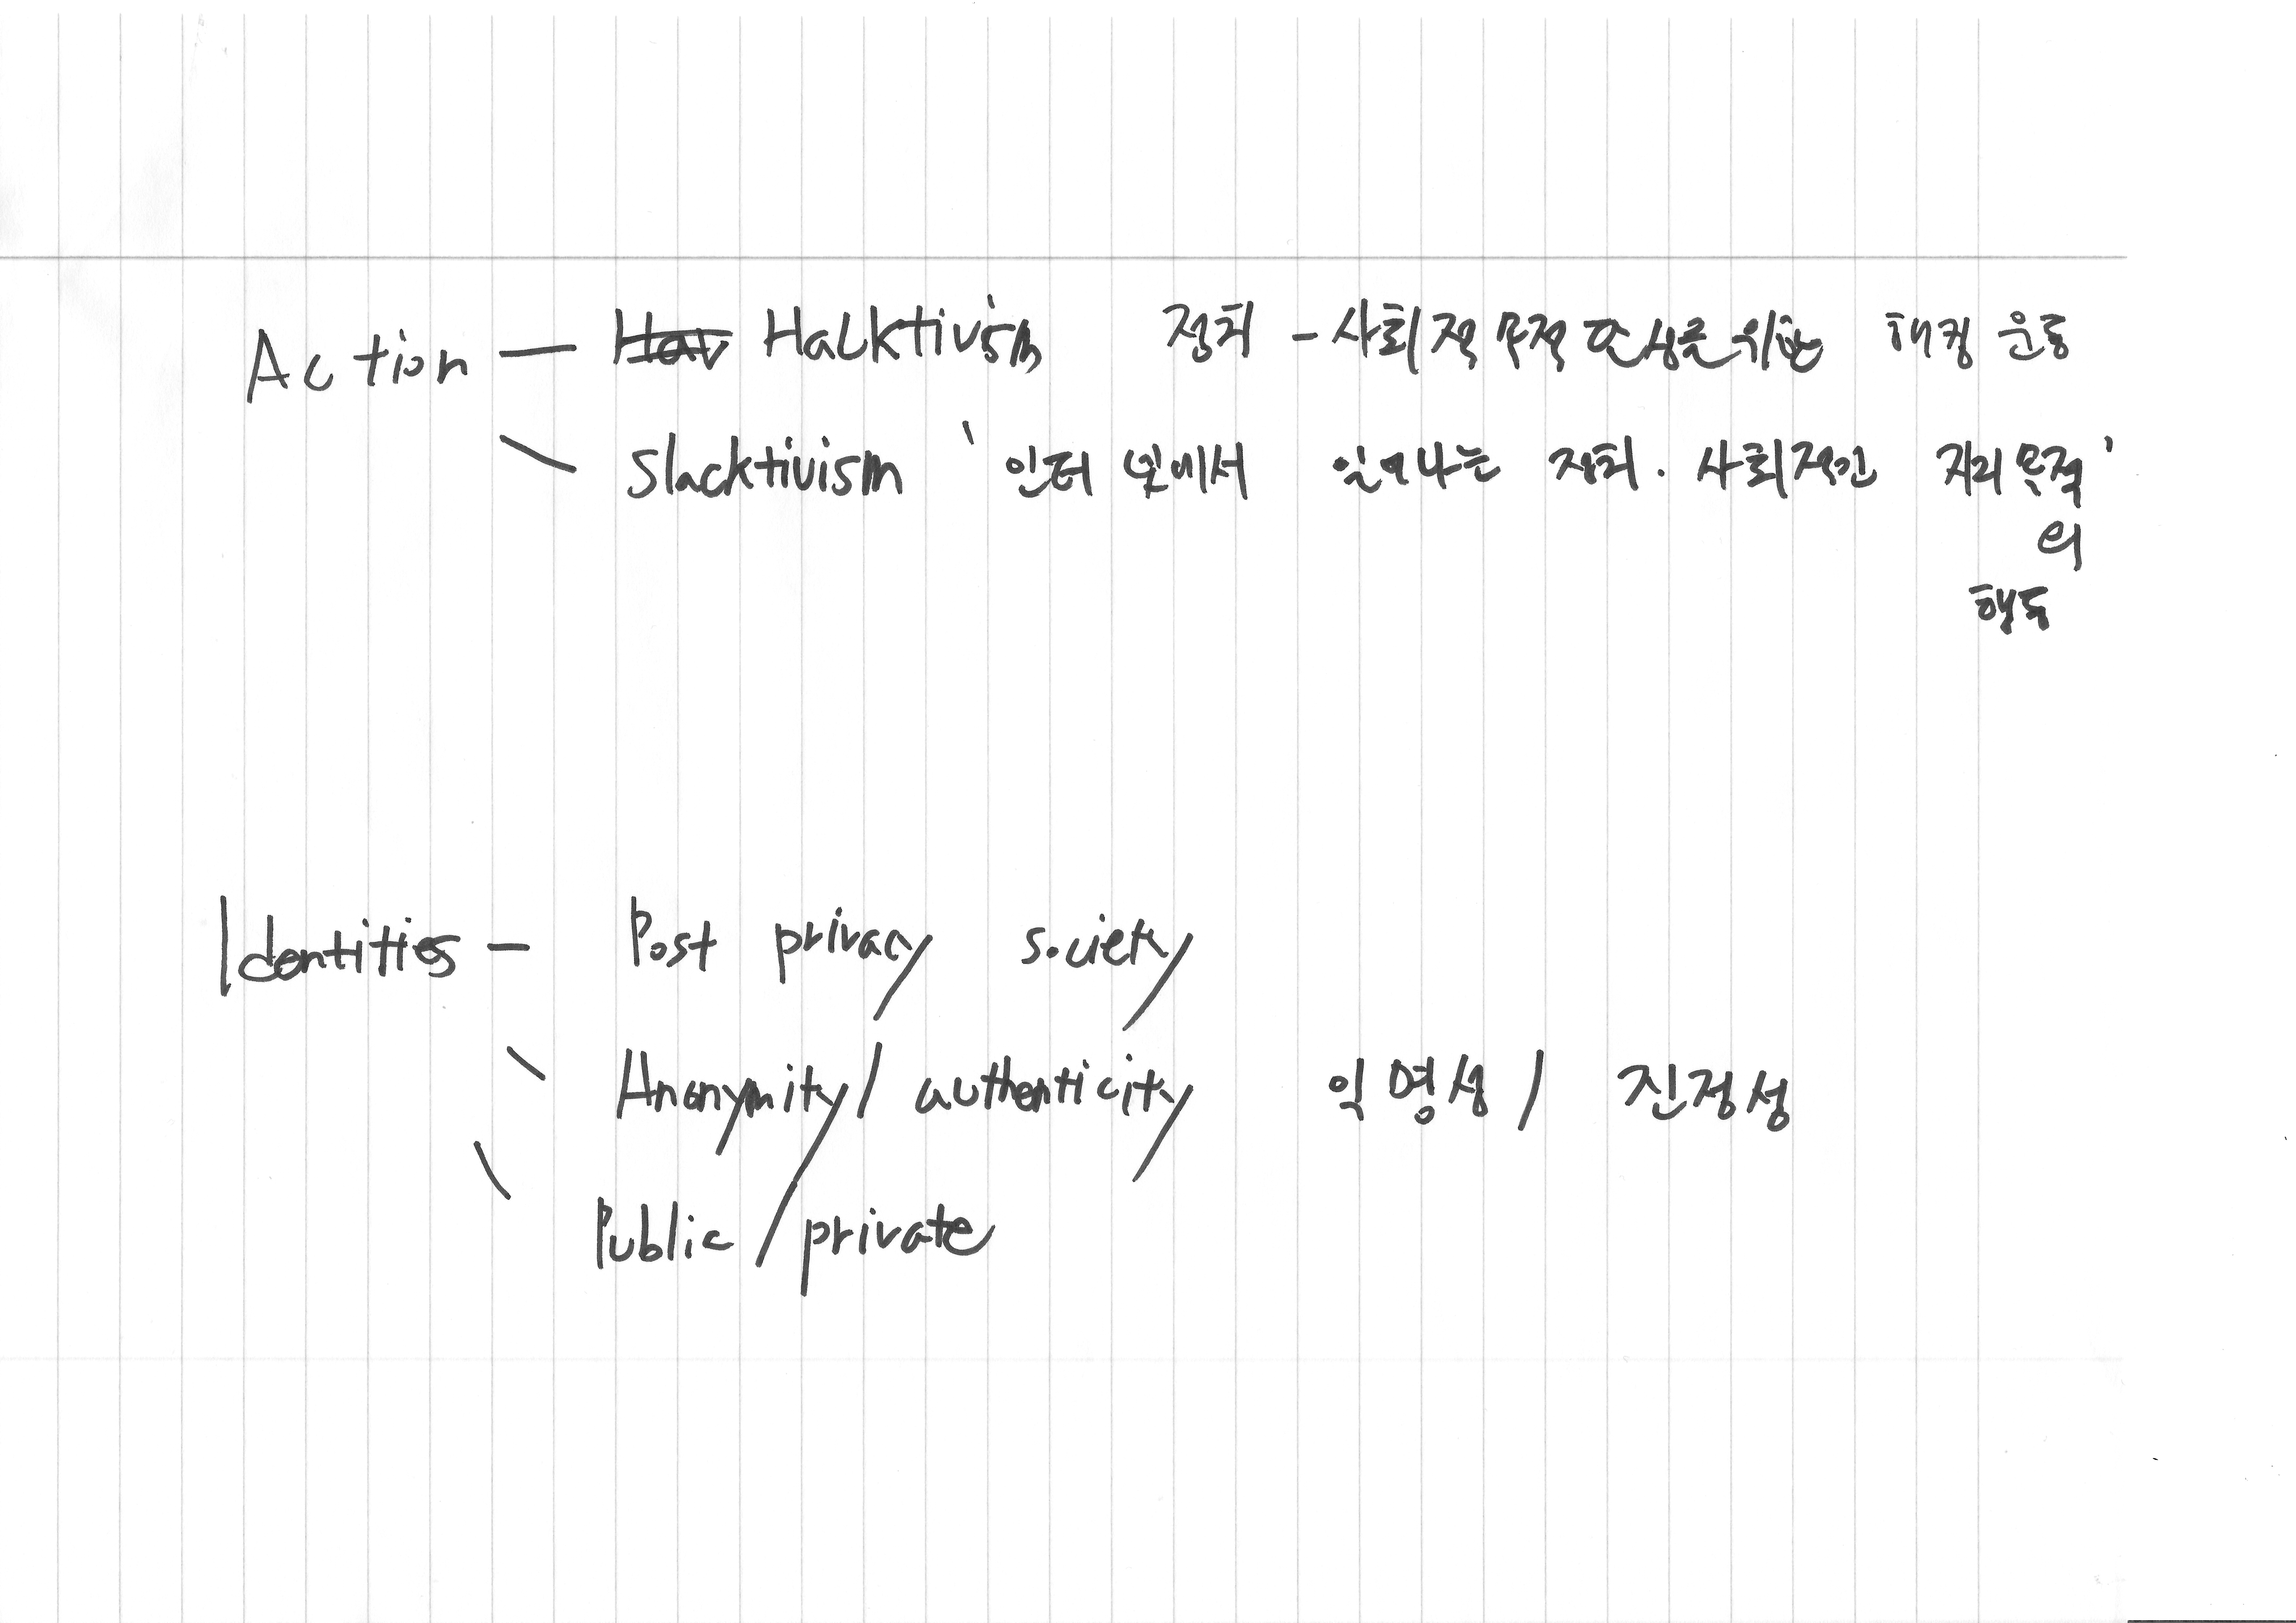 Action — Hacktivism 정치 - 사회적 목적 달성을 위한 해킹 운동
Slacktivism '인터넷에서 일어나는 정치. 사회적인 자리목적'
의
행동
Identities — Post privacy society
Anonymity / authenticity 익명성 / 진정성
Public / private